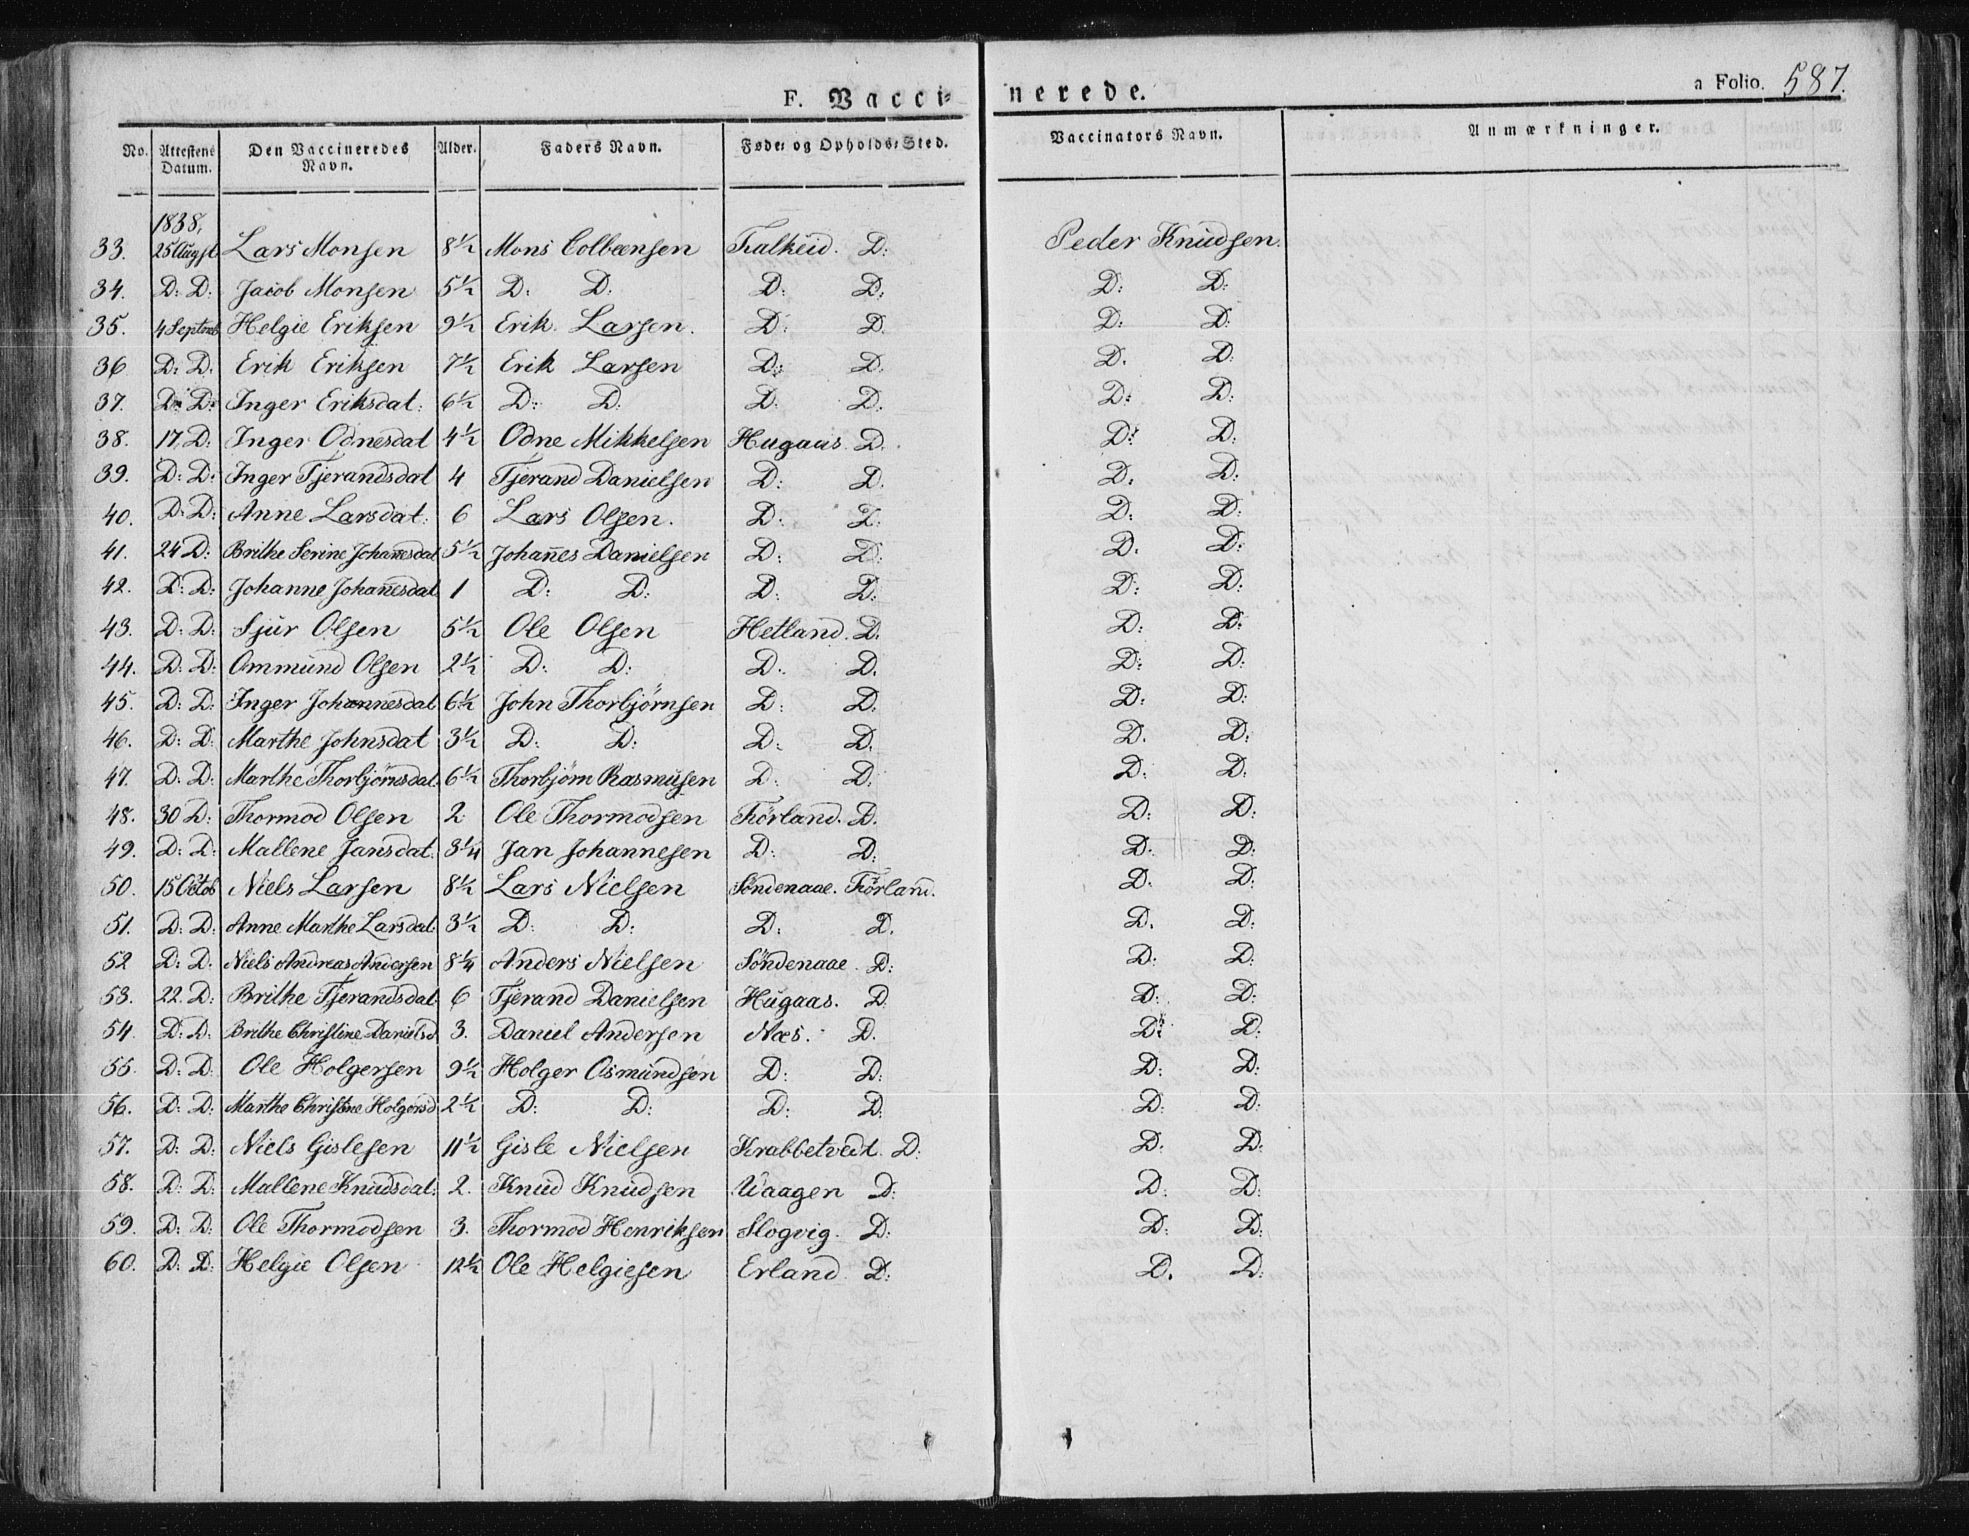 F. Vacci-nerede.
a Folio. 587.
No. Attestens Datum. Den Vaccineredes Navn. Alder. Faders Navn. Føde- og Opholds-Sted. Vaccinators Navn. Anmærkninger.
1838,
33. 25 Augst Lars Monsen 8½ Mons Colbeensen Falkeid. D: Peder Knudsen.
34. D: D: Jacob Monsen 5½ D: D: D: D: D: D:
35. 4 Septemb Helgie Eriksen 9½ Erik Larsen. D: D. D: D:
36 D: D. Erik Eriksen 7½ Erik Larsen D: D. D. D:
37. D: D: Inger Eriksdat: 6½ D: D: D: D. D: D:
38. 17. D: Inger Odnesdat 4½ Odne Mikkelsen Hugaas. D. D: D:
39. D: D: Inger Tjerandsdat 4 Tjerand Danielsen D: D. D. D:
40. D: D: Anne Larsdat: 6 Lars Olsen. D: D: D: D:
41. 24 D: Brithe Serine Johan̄esdat 5½ Johan̄es Danielsen D: D: D. D:
42. D: D: Johanne Johan̄esdat 1 D: D: D: D: D: D:
43. D: D: Sjur Olsen 5½ Ole Olsen Hetland. D. D: D:
44. D: D: Ommund Olsen 2½ D: D: D. D. D: D:
45. D: D: Inger Johannesdat 6½ John Thorbjörnsen D: D. D: D:
46. D: D: Marthe Johnsdat 3½ D: D: D: D. D. D:
47. D: D: Marthe Thorbjörnsdat 6½ Thorbjörn Rasmusen D: D: D: D:
48. 30 D: Thormod Olsen 2 Ole Thormodsen Förland. D. D: D:
49. D: D: Mallene Jansdat. 3¼ Jan Johannesen D: D: D. D:
50. 15 Octob Niels Larsen 8½ Lars Nielsen Söndenaae. Förlan̄. D. D:
51. D: D: Anne Marthe Larsdat 3½ D: D: D: D. D. D:
52 D: D. Niels Andreas Andersen 8¼ Anders Nielsen Söndenaae. D: D: D:
53. 22. D: Brithe Tjerandsdat 6 Tjerand Danielsen Hugaas. D D: D:
54. D: D. Brithe Christine Danielsd 3. Daniel Andersen Næs. D. D: D:
55. D: D: Ole Holgersen 9½ Holger Osmundsen D: D: D: D:
56. D: D: Marthe Christine Holgersd 2½ D: D: D: D: D: D:
57. D: D: Niels Gislesen 11½ Gisle Nielsen Krabbetvedt. D: D: D:
58. D: D. Mallene Knudsdat: 2. Knud Knudsen Waagen D: D: D:
59. D: D: Ole Thormodsen 3. Thormod Henriksen Slogvig. D: D: D:
60. D: D: Helgie Olsen 12½ Ole Helgiesen Erland. D: D. D: